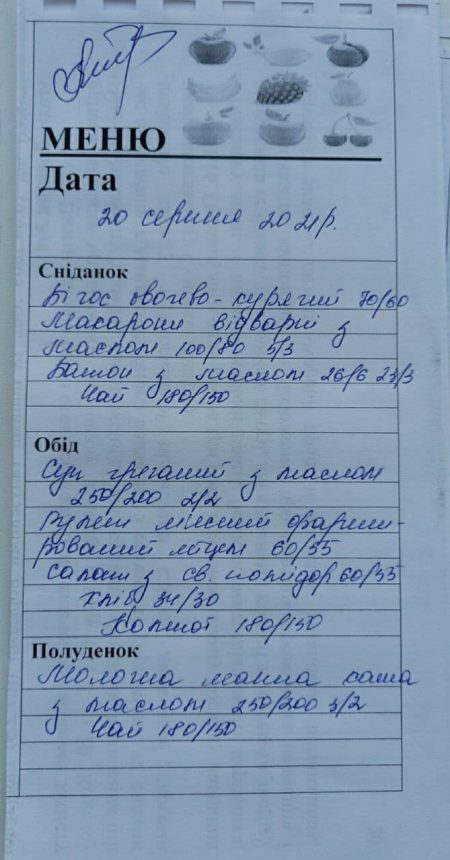 МЕНЮ
Дата
20 серпня 2021р.
Сніданок
Бігос овочево-курячий 70/60
Макарони відварні з
маслом 100/80 5/3
Батон з маслом 26/6 23/3
Чай 180/150
Обід
Суп гречаний з маслом
250/200 2/2
Рулет мясний фарши-
рований яйцем 60/55
Салат з св. помідор 60/55
Хліб 34/30
Компот 180/150
Полуденок
Молочна манна каша
з маслом 250/200 3/2
Чай 180/150